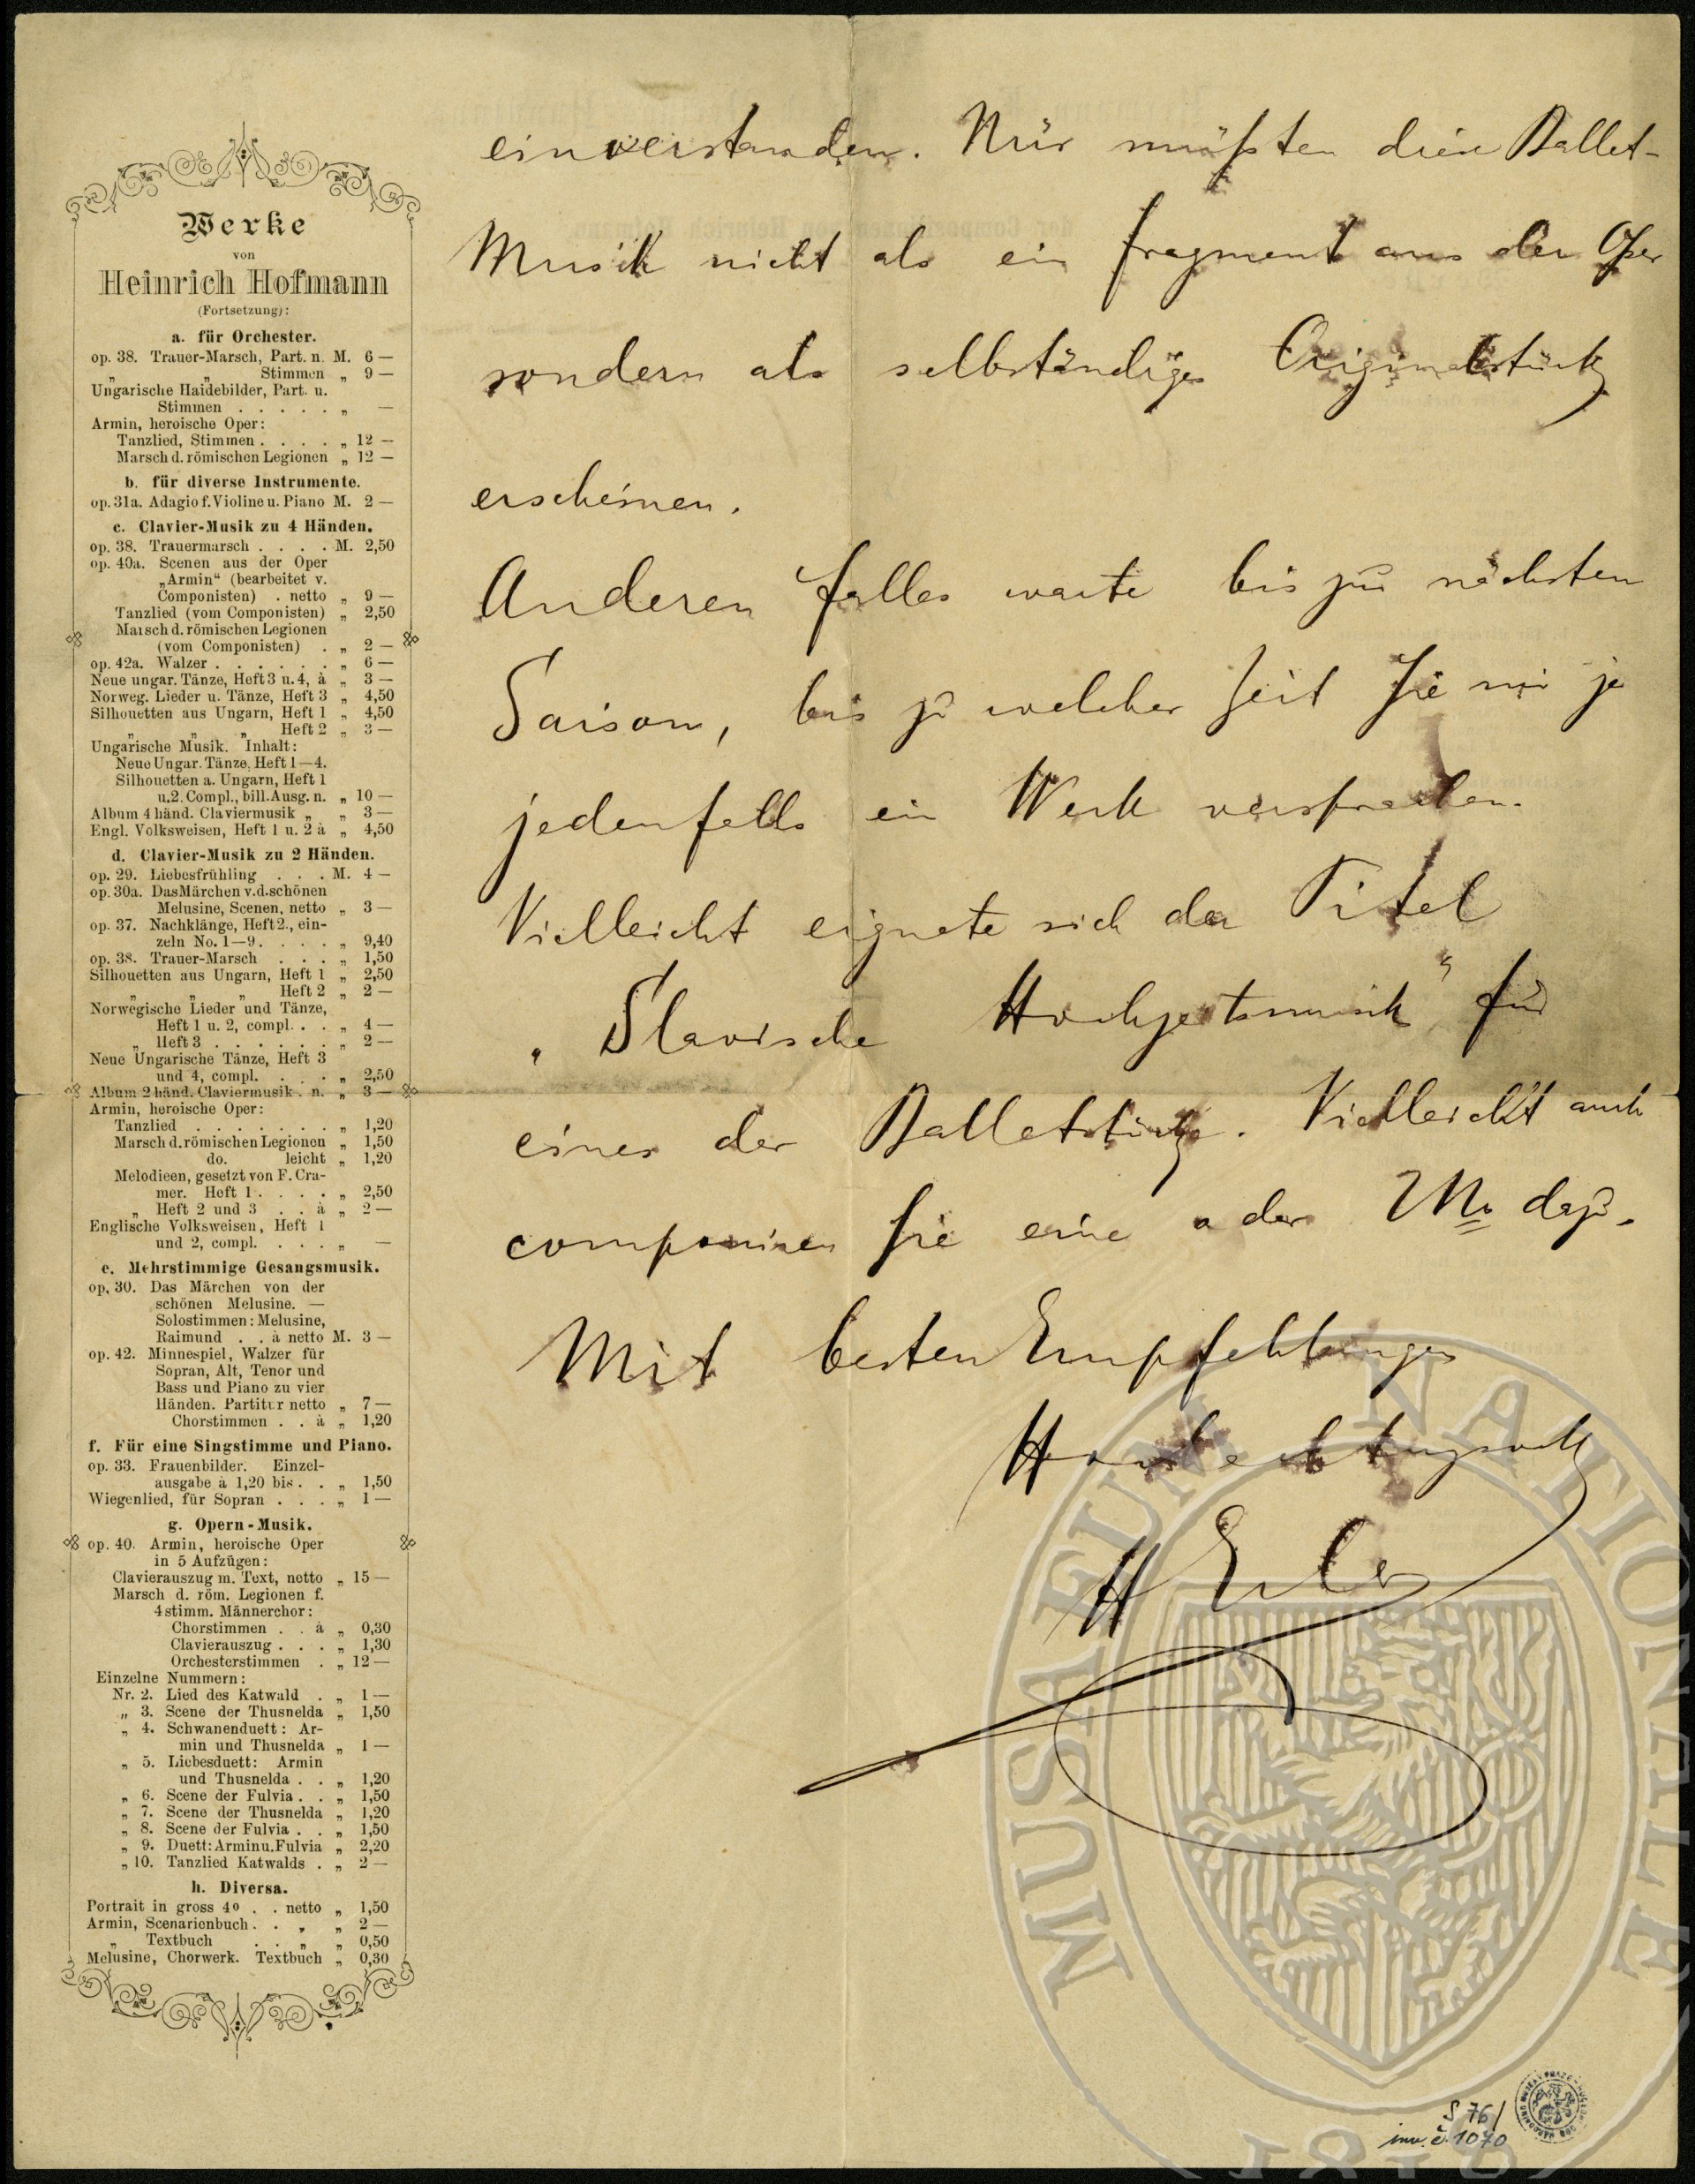 Werke
von
Heinrich Hofmann
(Fortsetzung):
a. für Orchester.
op. 38. Trauer-Marsch, Part. n. M. 6 —
„ „ Stimmen „ 9 —
Ungarische Haidebilder, Part. u.
Stimmen . . . . . „ —
Armin, heroische Oper:
Tanzlied, Stimmen . . . . „ 12 —
Marsch d. römischen Legionen „ 12 —
b. für diverse Instrumente.
op. 31a. Adagio f. Violine u. Piano M. 2 —
c. Clavier-Musik zu 4 Händen.
op. 38. Trauermarsch . . . . M. 2,50
op. 40a. Scenen aus der Oper
„Armin“ (bearbeitet v.
Componisten) . netto „ 9 —
Tanzlied (vom Componisten) „ 2,50
Marsch d. römischen Legionen
(vom Componisten) . „ 2 —
op. 42a. Walzer . . . . . . „ 6 —
Neue ungar. Tänze, Heft 3 u. 4, à „ 3 —
Norweg. Lieder u. Tänze, Heft 3 „ 4,50
Silhouetten aus Ungarn, Heft 1 „ 4,50
„ „ „ Heft 2 „ 3 —
Ungarische Musik. Inhalt:
Neue Ungar. Tänze, Heft 1—4.
Silhouetten a. Ungarn, Heft 1
u. 2. Compl., bill. Ausg. n. „ 10 —
Album 4 händ. Claviermusik „ „ 3 —
Engl. Volksweisen, Heft 1 u. 2 à „ 4,50
d. Clavier-Musik zu 2 Händen.
op. 29. Liebesfrühling . . . M. 4 —
op. 30a. Das Märchen v. d. schönen
Melusine, Scenen, netto „ 3 —
op. 37. Nachklänge, Heft 2., ein-
zeln No. 1—9 . . . . „ 9,40
op. 38. Trauer-Marsch . . . „ 1,50
Silhouetten aus Ungarn, Heft 1 „ 2,50
„ „ „ Heft 2 „ 2 —
Norwegische Lieder und Tänze,
Heft 1 u. 2, compl. . . „ 4 —
„ Heft 3 . . . . . . „ 2 —
Neue Ungarische Tänze, Heft 3
und 4, compl. . . . „ 2,50
Album 2 händ. Claviermusik . n. „ 3 —
Armin, heroische Oper:
Tanzlied . . . . . . . „ 1,20
Marsch d. römischen Legionen „ 1,50
do. leicht „ 1,20
Melodieen, gesetzt von F. Cra-
mer. Heft 1 . . . . „ 2,50
„ Heft 2 und 3 . . à „ 2 —
Englische Volksweisen, Heft 1
und 2, compl. . . . . „ —
e. Mehrstimmige Gesangsmusik.
op. 30. Das Märchen von der
schönen Melusine. —
Solostimmen: Melusine,
Raimund . . à netto M. 3 —
op. 42. Minnespiel, Walzer für
Sopran, Alt, Tenor und
Bass und Piano zu vier
Händen. Partitur netto „ 7 —
Chorstimmen . . à „ 1,20
f. Für eine Singstimme und Piano.
op. 33. Frauenbilder. Einzel-
ausgabe à 1,20 bis . . „ 1,50
Wiegenlied, für Sopran . . . „ 1 —
g. Opern-Musik.
op. 40. Armin, heroische Oper
in 5 Aufzügen:
Clavierauszug m. Text, netto „ 15 —
Marsch d. röm. Legionen f.
4 stimm. Männerchor:
Chorstimmen . . à „ 0,30
Clavierauszug . . . „ 1,30
Orchesterstimmen . „ 12 —
Einzelne Nummern:
Nr. 2. Lied des Katwald . „ 1 —
„ 3. Scene der Thusnelda „ 1,50
„ 4. Schwanenduett: Ar-
min und Thusnelda „ 1 —
„ 5. Liebesduett: Armin
und Thusnelda . . „ 1,20
„ 6. Scene der Fulvia . . „ 1,50
„ 7. Scene der Thusnelda „ 1,20
„ 8. Scene der Fulvia . . „ 1,50
„ 9. Duett: Armin u. Fulvia „ 2,20
„ 10. Tanzlied Katwalds . „ 2 —
h. Diversa.
Portrait in gross 4º . . netto „ 1,50
Armin, Scenarienbuch . . „ „ 2 —
„ Textbuch . . „ „ 0,50
Melusine, Chorwerk. Textbuch „ 0,30
einverstanden. Nur müßten diese Ballet-
Musik nicht als ein fragment aus der Oper
sondern als selbständiges Originalstück
erscheinen.
Anderen falles warte bis zur nächsten
Saison, bis zu welcher Zeit Sie mir ja
jedenfalls ein Werk versprachen.
Vielleicht eignete sich der Titel
„Slavische Hochzeitsmusik“ für
eines der Balletstücke. Vielleicht auch
componiren Sie eine a der No dazu.
Mit besten Empfehlungen
Hochachtungsvoll
H Erler
MUSAEUM NATIONALE
1818
S 76/
inv. č. 1070